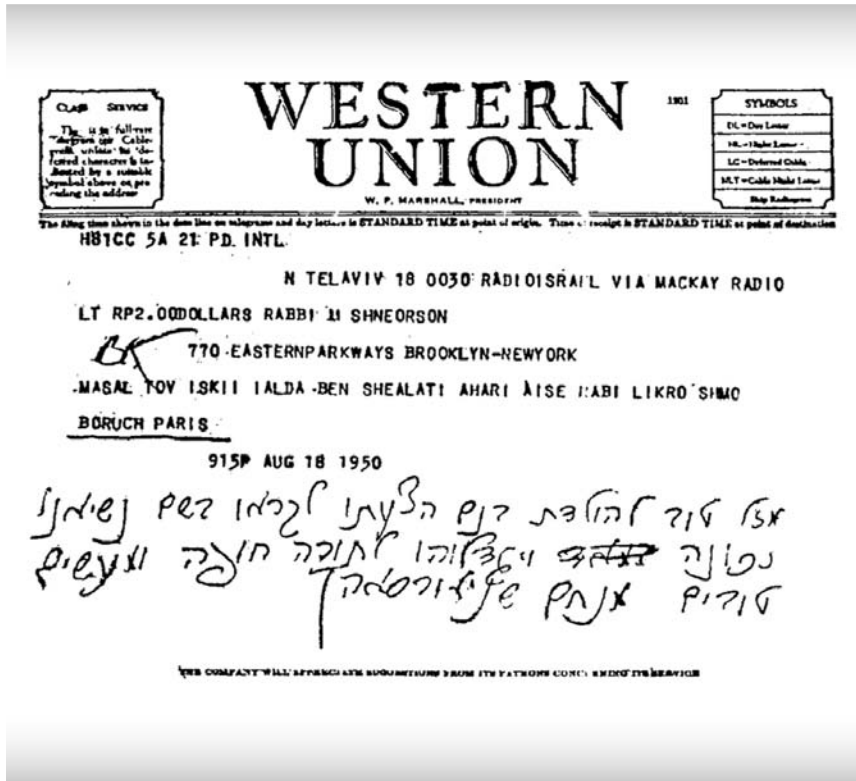 CLASS SERVICE
This is a full-rate
Telegram or Cable-
gram unless its de-
ferred character is in-
dicated by a suitable
symbol above or pre-
ceding the address
WESTERN
UNION
W. P. MARSHALL, PRESIDENT
1201
SYMBOLS
DL=Day Letter
NL=Night Letter
LC=Deferred Cable
NLT=Cable Night Letter
Ship Radiogram
The filing time shown in the date line on telegrams and day letters is STANDARD TIME at point of origin. Time of receipt is STANDARD TIME at point of destination
H81CC 5A 21 PD INTL
N TELAVIV 18 0030 RADIOISRAEL VIA MACKAY RADIO
LT RP2.00DOLLARS RABBI M SHNEORSON
770 EASTERNPARKWAYS BROOKLYN-NEWYORK
MASAL TOV ISKII IALDA BEN SHEALATI AHARI AISE RABI LIKRO SHMO
BORUCH PARIS
915P AUG 18 1950
מזל טוב להולדת בנם הצעתו לקראו בשם נשיאנו
נכונה ויגדלוהו לתורה חופה ומעשים
טובים מנחם שניאורסאהן
THE COMPANY WILL APPRECIATE SUGGESTIONS FROM ITS PATRONS CONCERNING ITS SERVICE